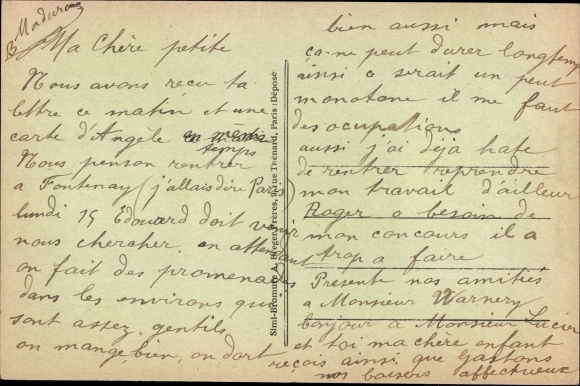 B Maduron
Ma Chère petite
Nous avons reçu ta
lettre ce matin et une
carte d'Angèle en meme
temps
Nous penson rentrer
a Fontenay (j'allais dire Paris)
lundi 15 Edouard doit venir
nous chercher. en attendant
on fait des promenades
dans les environs qui
sont assez gentils
on mange bien, on dort
bien aussi mais
ça ne peut durer longtemp
ainsi ce serait un peut
monotone il me faut
des ocupations
aussi j'ai dèjà hate
de rentrer reprendre
mon travail d'ailleur
Roger a besoin de
mon concours il a
trop a faire
Présente nos amitiés
a Monsieur Warnery
bonjour a Monsieur Lucien
et toi ma chère enfant
reçois ainsi que Gastons
nos baisers affectueux
Simi-Bromure A. Breger Frères, 9, rue Thénard, Paris (Déposé